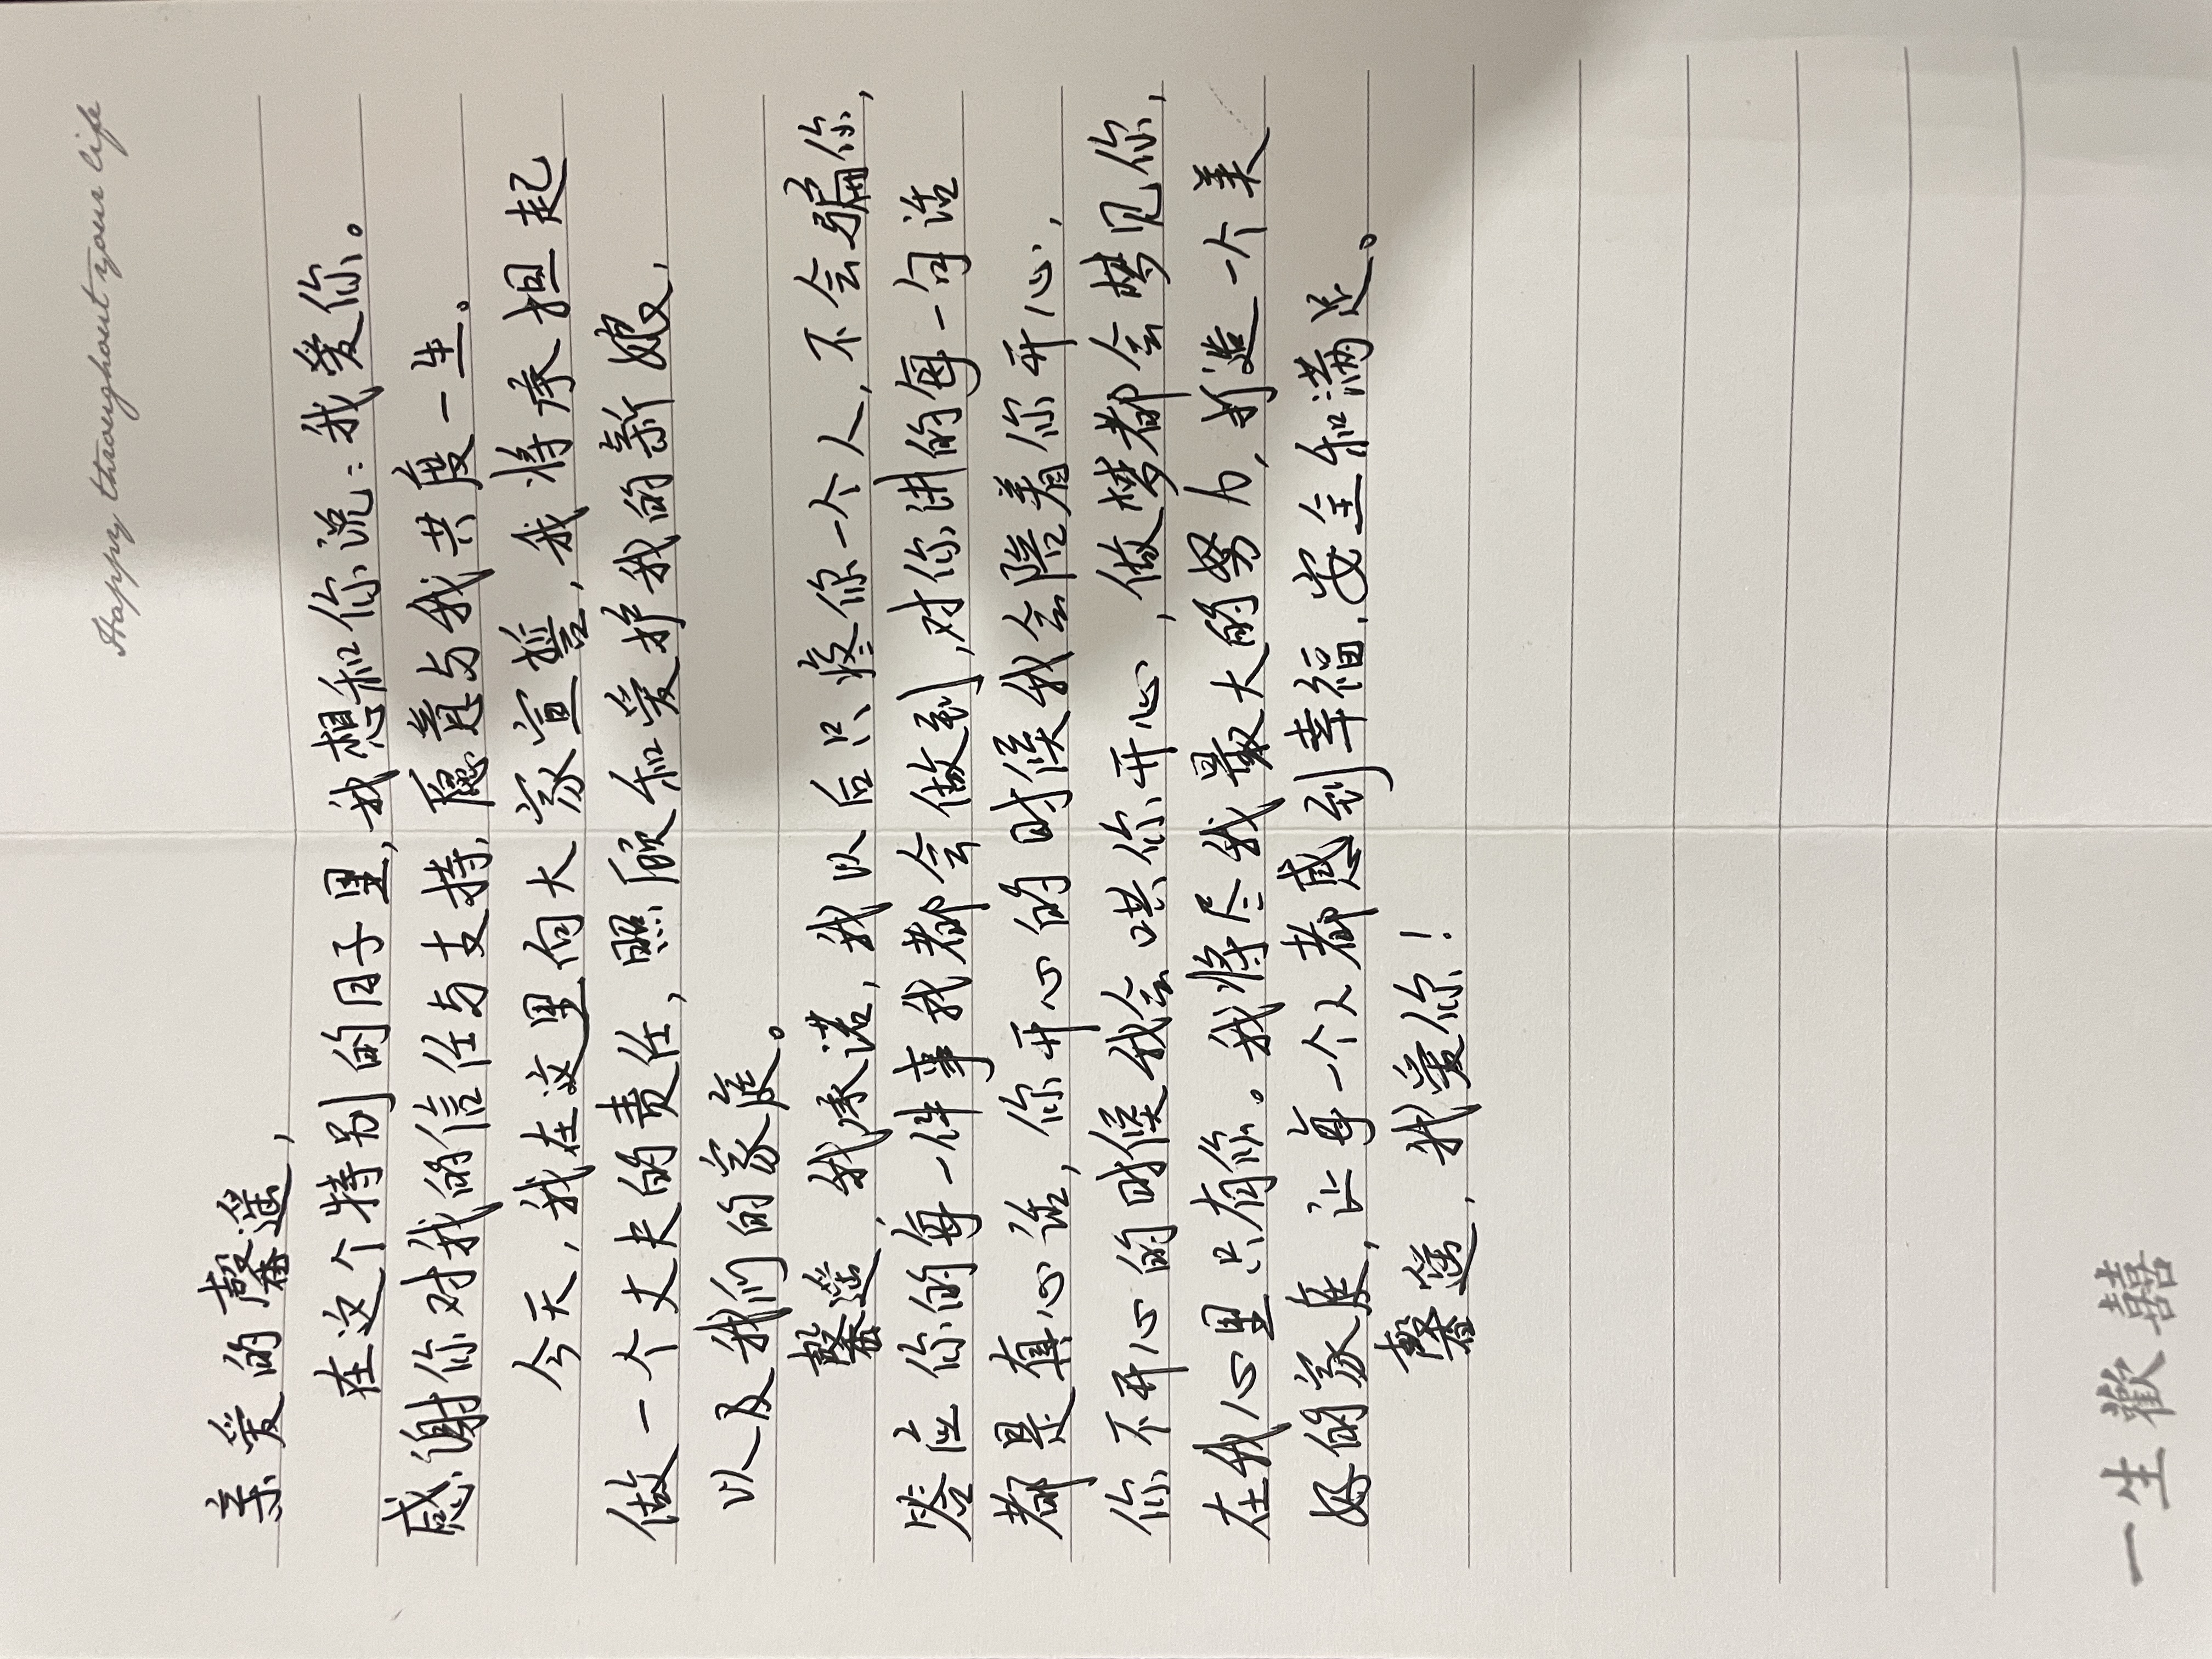 Happy throughout your life
亲爱的馨遥，
在这个特别的日子里，我想和你说：我爱你。
感谢你对我的信任与支持，愿意与我共度一生。
今天，我在这里向大家宣誓，我将承担起
做一个丈夫的责任，照顾和爱护我的新娘，
以及我们的家庭。
馨遥，我承诺，我以后只疼你一个人，不会骗你，
答应你的每一件事我都会做到，对你讲的每一句话
都是真心话，你开心的时候我会陪着你开心，
你不开心的时候我会哄你开心，做梦都会梦见你，
在我心里只有你。我将尽我最大的努力，打造一个美
好的家庭，让每一个人都感到幸福，安全和满足。
馨遥，我爱你！
一生歡囍